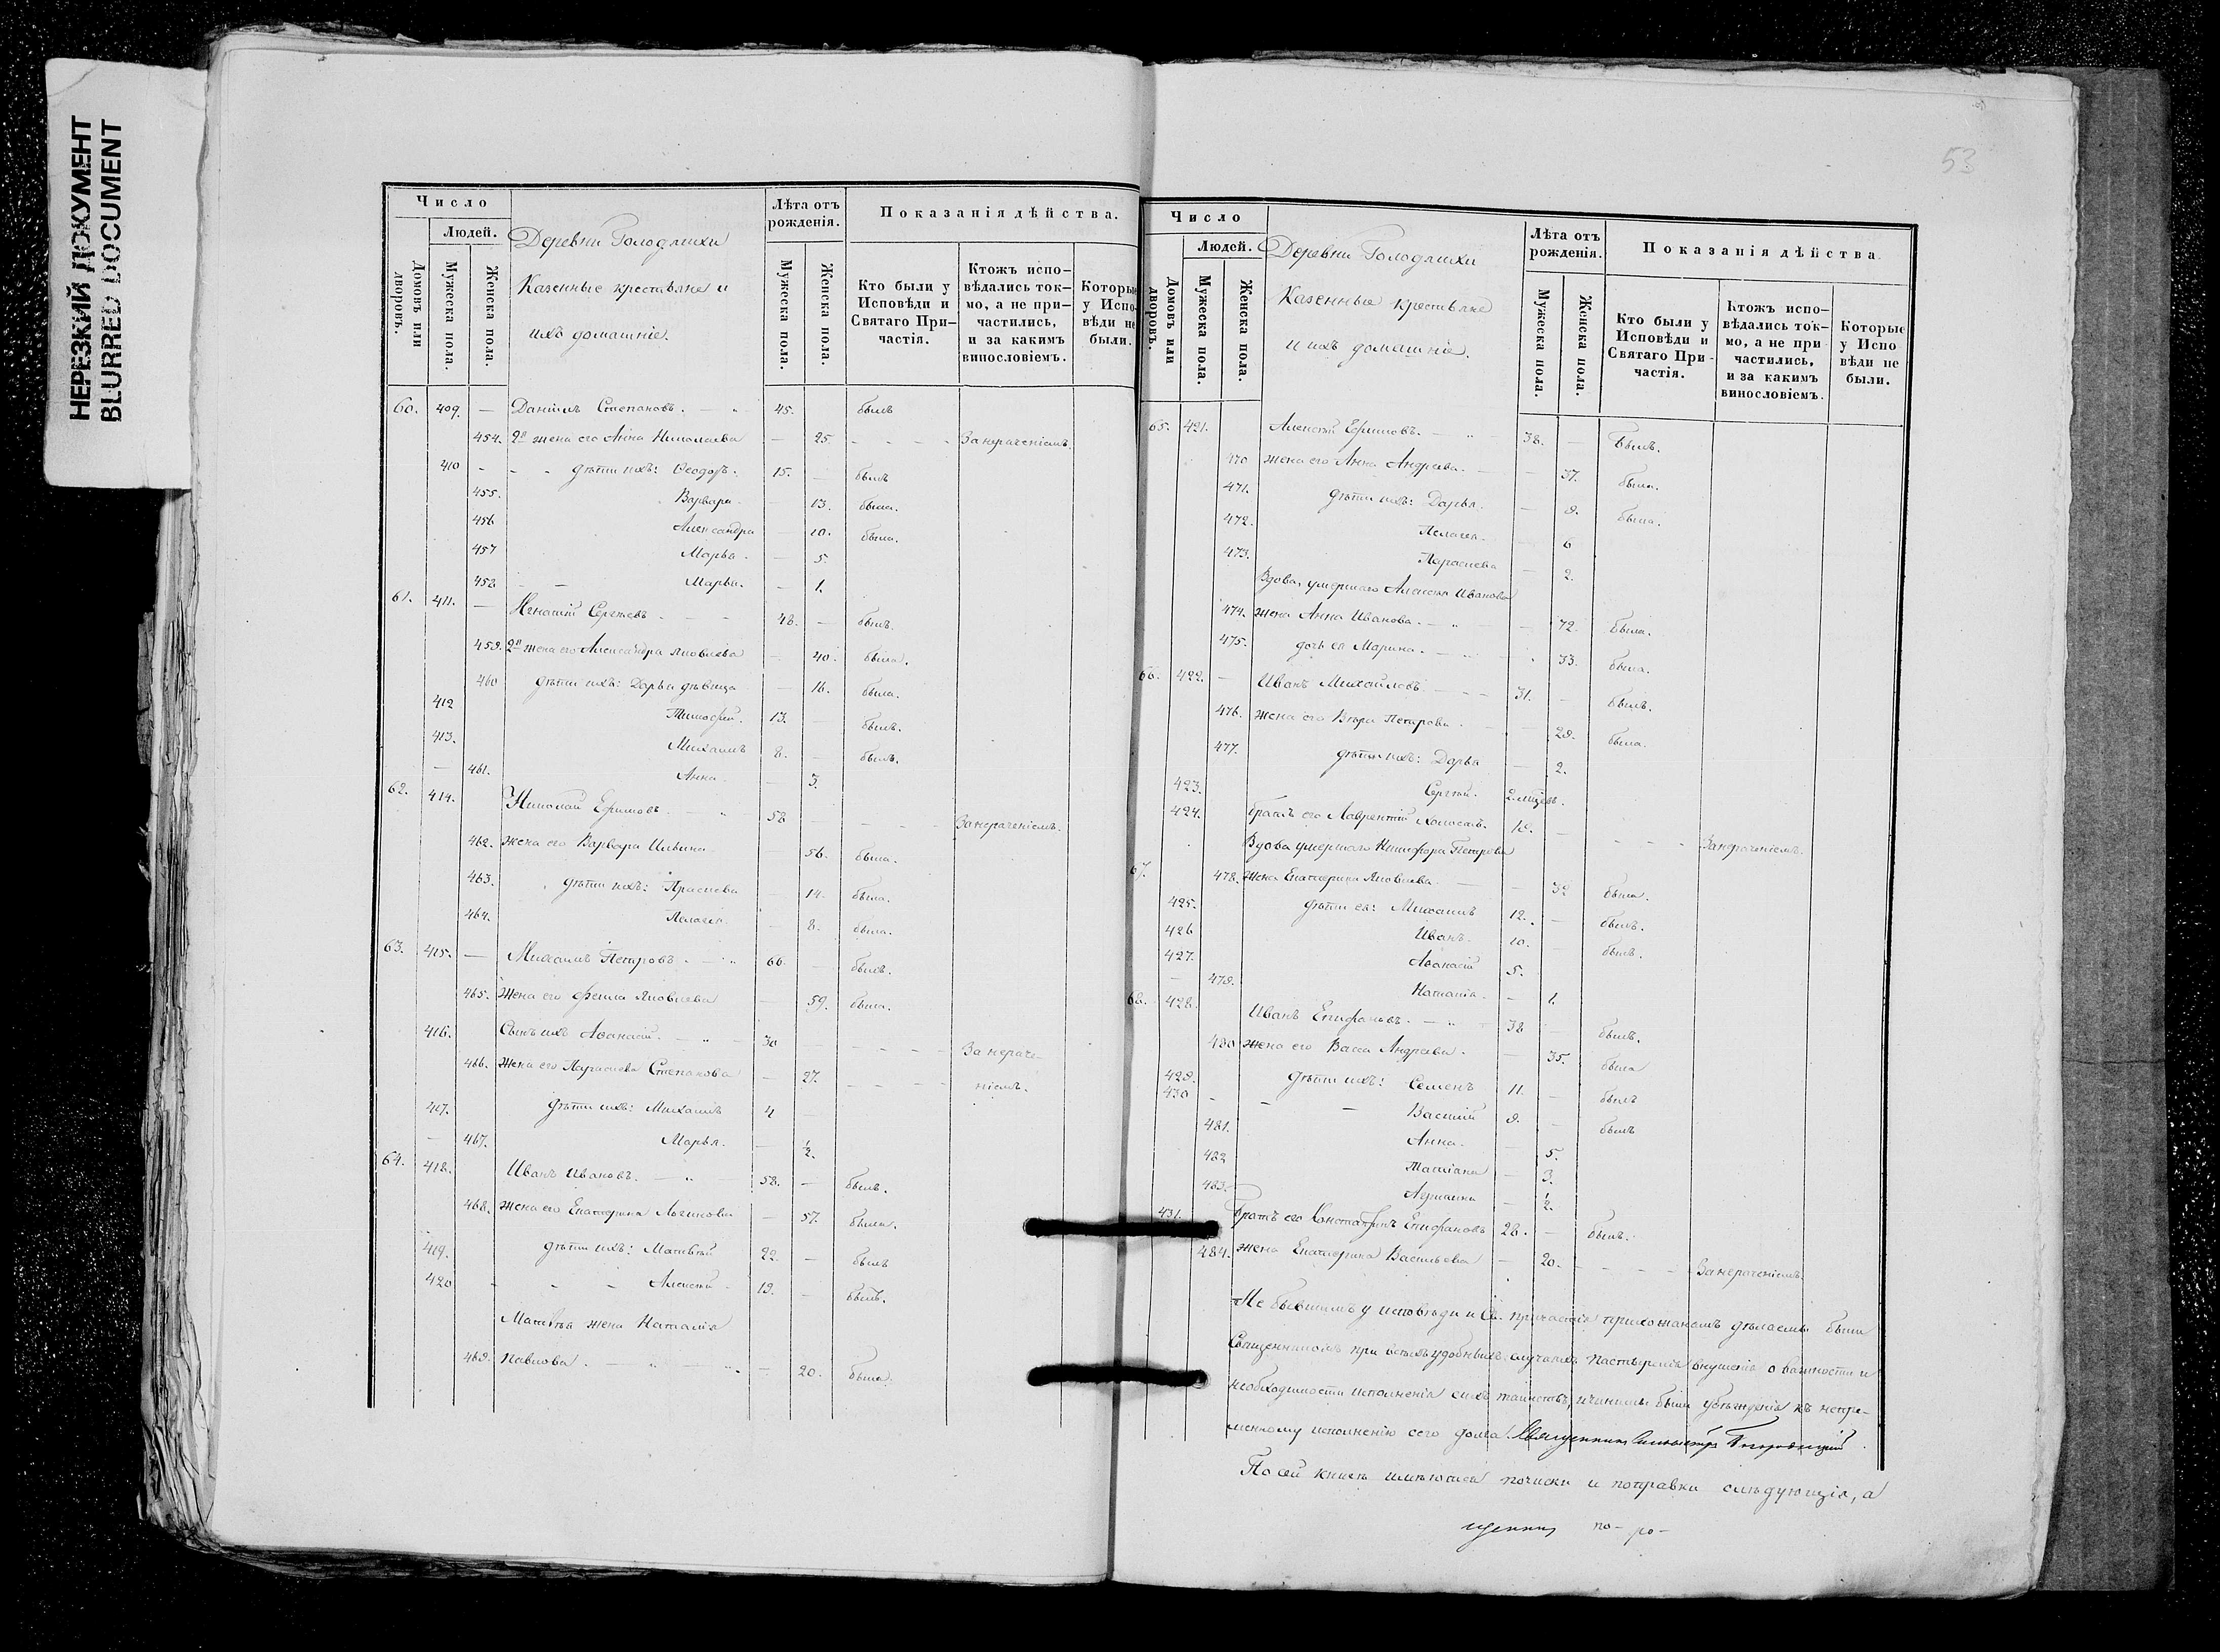 НЕРЕЗКИЙ ДОКУМЕНТ
BLURRED DOCUMENT
Число
Людей.
Домовъ или дворовъ.
Мужеска пола.
Женска пола.
Деревни Голодлихи
Казенные крестьяне и
ихъ домашніе.
Лѣта отъ рожденія.
Мужеска пола.
Женска пола.
Показанія дѣйства.
Кто были у Исповѣди и Святаго Причастія.
Ктожъ исповѣдались токмо, а не причастились, и за какимъ винословіемъ.
Которые у Исповѣди не были.
60. 409. — Даніилъ Степановъ. — „ 45. былъ
454. 2я жена его Анна Николаева — 25. - - - - За нераченіемъ.
410 - - - дѣти ихъ: Ѳеодоръ. 15. — былъ
455. Варвара. 13. была.
456 Александра — 10. была.
457 Марья. — 5.
458 — — Марья. — 1.
61. 411. — Игнатій Сергѣевъ. — — 48. — былъ.
459. 2я жена его Александра Яковлева — 40. была.
460 дѣти ихъ: Дарья дѣвица — 16. была.
412 Тимофей. 13. — былъ.
413. Михаилъ 8. — былъ.
— 461. Анна. — 3.
62. 414. Николай Ефимовъ. — „ 58 - - - - За нераченіемъ.
462. жена его Варвара Ильина — 56. была.
463. дѣти ихъ: Прасковья — 14. была.
464. Пелагея. — 8. была.
63. 415. — Михаилъ Петровъ. — „ 66. — былъ.
465. Жена его Фекла Яковлева — 59. была.
416. Сынъ ихъ Аѳанасій. — „ — 30 - - - - За нераче-
466. жена его Парасковья Степанова — 27. - - - ніемъ.
417. дѣти ихъ: Михаилъ 4 —
— 467. Марья. — ½.
64. 418. Иванъ Ивановъ. — „ — 58. — былъ.
468. жена его Екатерина Логинова — 57. была.
419. дѣти ихъ: Матвѣй 22. — былъ
420 - - - Алексѣй 19. — былъ.
Матвѣя жена Наталія
469. Павлова. — „ — „ — 20. была.
53
Число
Людей.
Домовъ или дворовъ.
Мужеска пола.
Женска пола.
Деревни Голодлихи
Казенные крестьяне
и ихъ домашніе.
Лѣта отъ рожденія.
Мужеска пола.
Женска пола.
Показанія дѣйства
Кто были у Исповѣди и Святаго Причастія.
Ктожъ исповѣдались токмо, а не причастились, и за какимъ винословіемъ.
Которые у Исповѣди не были.
65. 421. Алексѣй Ефимовъ. — „ — 38. — Былъ.
470 жена его Анна Андреева. — — 37. была.
471. дѣти ихъ: Дарья. — 9. была.
472. Пелагея. — 6
473. Парасковья — 2.
Вдова, умершаго Алексѣя Иванова
474. жена Анна Иванова. — „ — 72. была.
475. дочь ея Марина. — „ 33. была.
66. 422. — Иванъ Михайловъ. — — — 31. былъ.
476. жена его Вѣра Петрова. — — 29. была.
477. дѣти ихъ: Дарья — 2.
423. Сергѣй. 2. мѣсяц.
424. братъ его Лаврентій холостъ. 18. — - - - За нераченіемъ.
Вдова умершаго Никифора Петрова
67. 478. жена Екатерина Яковлева. — — 32 была.
425. дѣти ея: Михаилъ 12. — былъ.
426 Иванъ. 10. — былъ.
427. Аѳанасій 5.
— 479. Наталія. — 1.
68. 428. Иванъ Епифановъ. — „ — 38 — былъ.
480 жена его Васса Андреева. — 35. была
429. дѣти ихъ: Семенъ 11. — былъ
430 - - - Василій 9. — былъ
481. Анна. — 5.
482 Татіана — 3.
483. — ½.
431. Братъ его Константинъ Епифановъ 28. — былъ.
484. жена Екатерина Васильева — 20. - - - - За нераченіемъ.
Не бывшимъ у исповѣди и Св. причастія прихожанамъ дѣлаемы были
Священникомъ при всѣхъ удобныхъ случаяхъ пастырскія внушенія о важности и
необходимости исполненія сихъ таинствъ, и чинимы были убѣжденія къ непре-
менному исполненію сего долга. Священникъ
По сей книгѣ имѣются почистки и поправки слѣдующія, а
щенникъ по- ро-